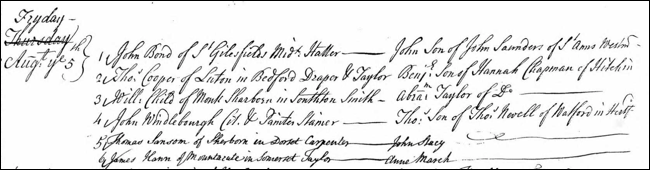 Fryday -
Thursday
Augt ye 5th
1 John Bond of St Gilesfields Midx Hatter — John Son of John Saunders of St Anns Westmr
2 Thos Cooper of Luton in Bedford Draper & Taylor Benjn Son of Hannah Chapman of Hitchin
3 Willm Child of Monk Sharborn in Southton Smith — Abram Taylor of Do —
4 John Windleburgh Cit. & Painter Stainer — Thos Son of Thos Newell of Watford in Hertf
5 Thomas Sansom of Sherborn in Dorset Carpenter — John Stacy
6 James Hann of Mountacute in Somerset Taylor — Anne March